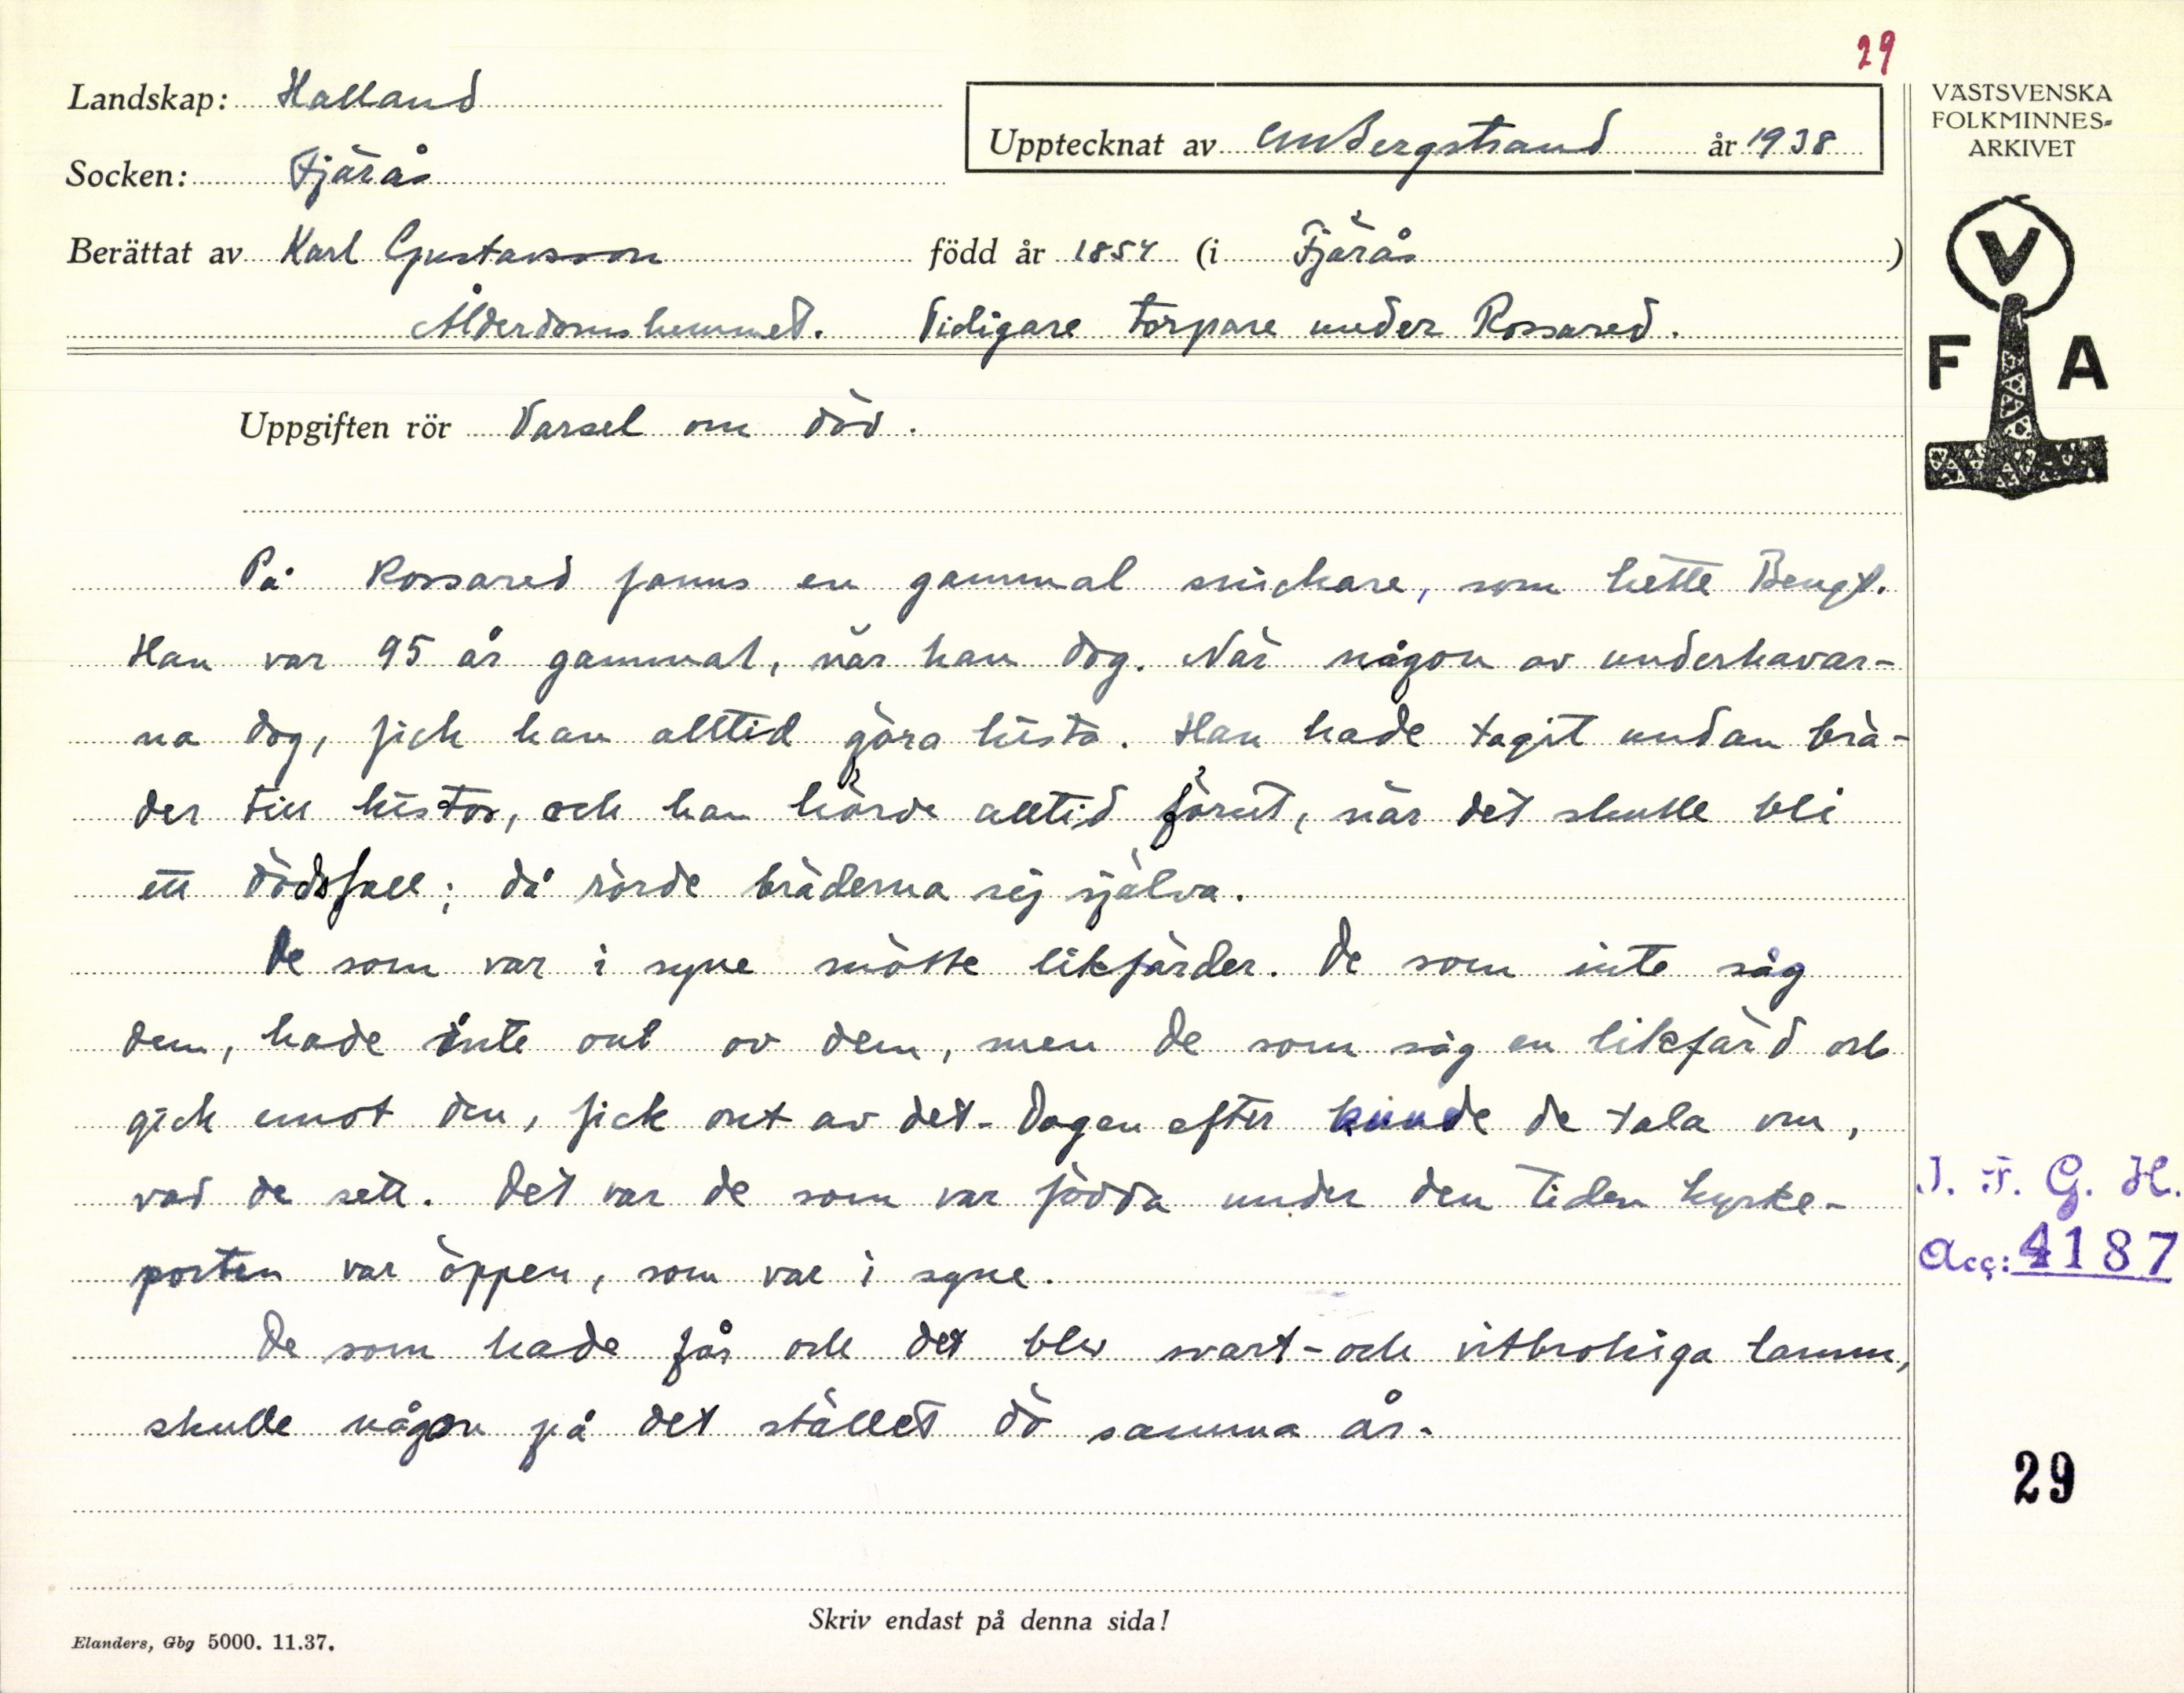 29
Landskap: Halland
Upptecknat av CMBergstrand år 1938
Socken: Fjärås
Berättat av Karl Gustavsson född år 1854 (i Fjärås)
Ålderdomshemmet. Tidigare torpare under Rossared.
VÄSTSVENSKA
FOLKMINNES-
ARKIVET
V
F A
Uppgiften rör Varsel om död.
På Rossared fanns en gammal snickare, som hette Bengt.
Han var 95 år gammal, när han dog. När någon av underhavar-
na dog, fick han alltid göra kista. Han hade tagit undan brä-
der till kistor, och han hörde alltid förut, när det skulle bli
ett dödsfall; då rörde bräderna sej själva.
De som var i syne mötte likfärder. De som inte såg
dem, hade inte ont av dem, men de som såg en likfärd och
gick emot den, fick ont av det. Dagen efter kunde de tala om,
vad de sett. Det var de som var födda under den tiden kyrke-
porten var öppen, som var i syne.
De som hade får och det blev svart- och vitbrokiga lamm,
skulle någon på det stället dö samma år.
I. F. G. H.
Acc: 4187
29
Skriv endast på denna sida!
Elanders, Gbg 5000. 11.37.